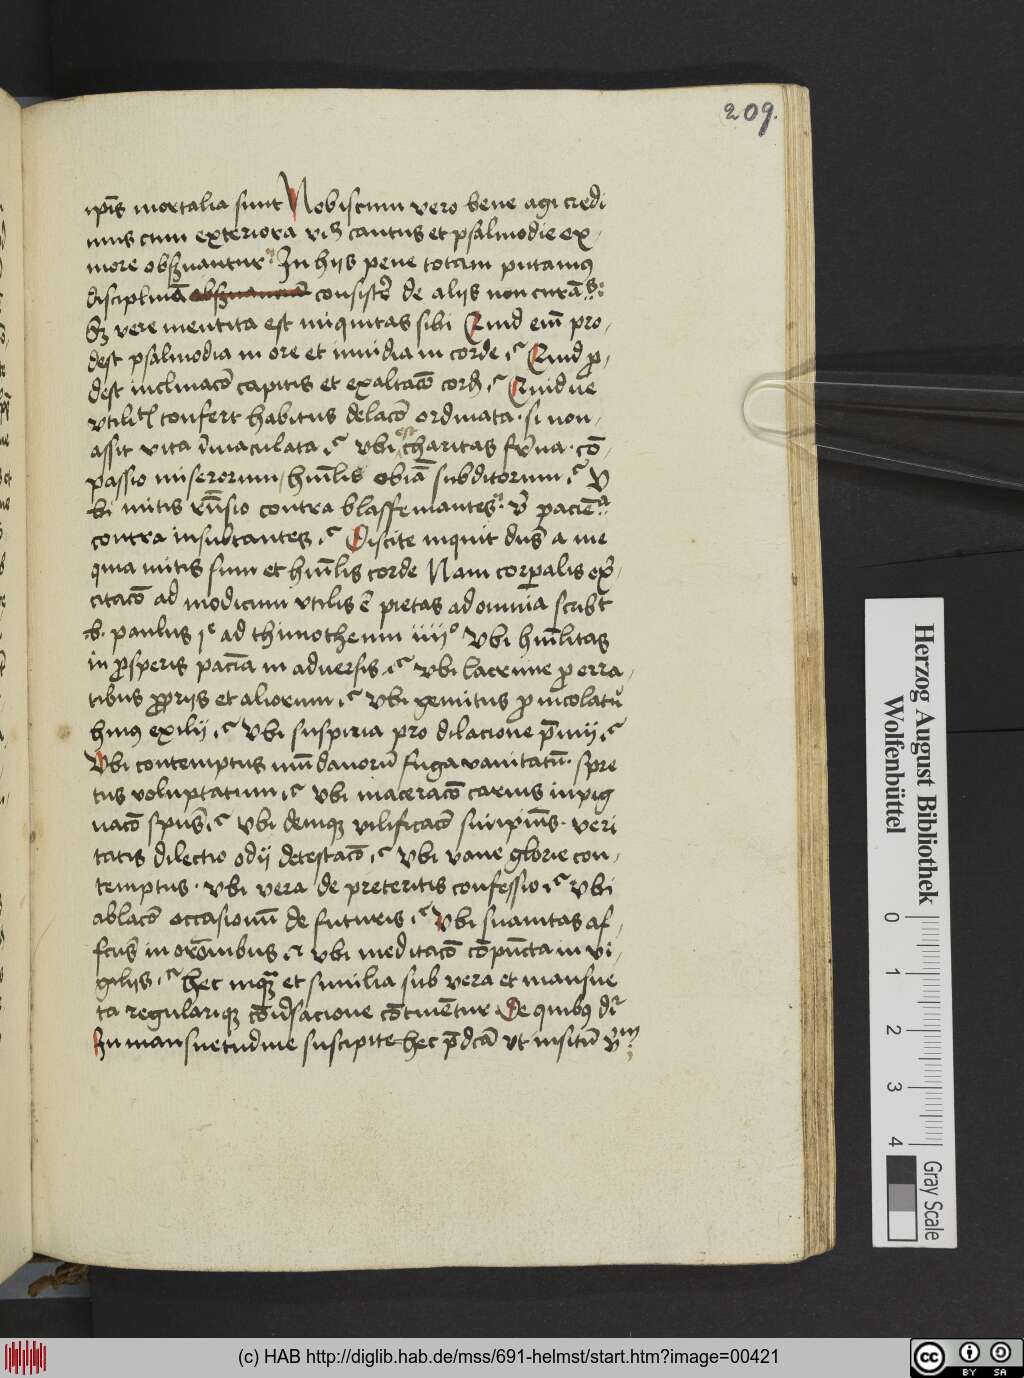 209.
ip̄is mortalia sunt Nobiscum vero bene agi credi
mus cum exteriora cantus et psalmodie ex
more obseruantur In hijs pene totam putamus
disciplinā obseruanciā consiste᷑ de alijs non curam᷑
sꝫ vere mentita est iniquitas sibi Quid em̄ pro-
dest psalmodia in ore et inuidia in corde .? Quid ꝓ-
dest inclinacō capitis et exaltacō cord᷑ .? Quid ue
vtilit᷑ confert habitus delacō ordinata · si non
assit vita īmaculata .? vbi est charitas fr̄na · cō-
passio miserorum / hūilis obiā subditorum .? V
bi mitis rn̄sio contra blassfemantes · v̄ paciē᷑ᵃ
contra insultantes .? Discite inquit dn̄s a me
quia mitis sum et hūilis corde Nam corꝑalis ex᷑-
citacō ad modicum vtilis ē pietas ad omnia scrib᷑t
b. paulus jᵉ ad thimotheum iiijᵒ Vbi hūilitas
in ꝓsperis paciā in aduersis .? vbi lacrime ꝓ erra-
tibus ꝓprijs et aliorum .? vbi gemitus ꝓ incolatū
huius exilij .? Vbi suspiria pro dilacione p̄mij .?
Vbi contemptus mūdanorū fuga vanitatū · spre
tus voluptatum .? vbi maceracō carnis inpig
nacō spūs .? Vbi deniqꝫ vilificacō suiipīus · veri
tatis dilectio odij detestacō .? Vbi vane glorie con-
temptus · vbi vera de preteritis confessio .? vbi
ablacō occasionū de futuris .? Vbi suauitas af-
fcūs in orōnibus .? vbi meditacō cōpūcta in vi-
gilijs .? hec inqꝫ et similia sub vera et mansue
ta regulariqꝫ cōu᷑sacione cōtinētur De quibus d᷑r
In mansuetudine suscipite hec p̄dcā vt insitū v᷑m
Herzog August Bibliothek
Wolfenbüttel
0 1 2 3 4
Gray Scale
(c) HAB http://diglib.hab.de/mss/691-helmst/start.htm?image=00421
cc BY SA